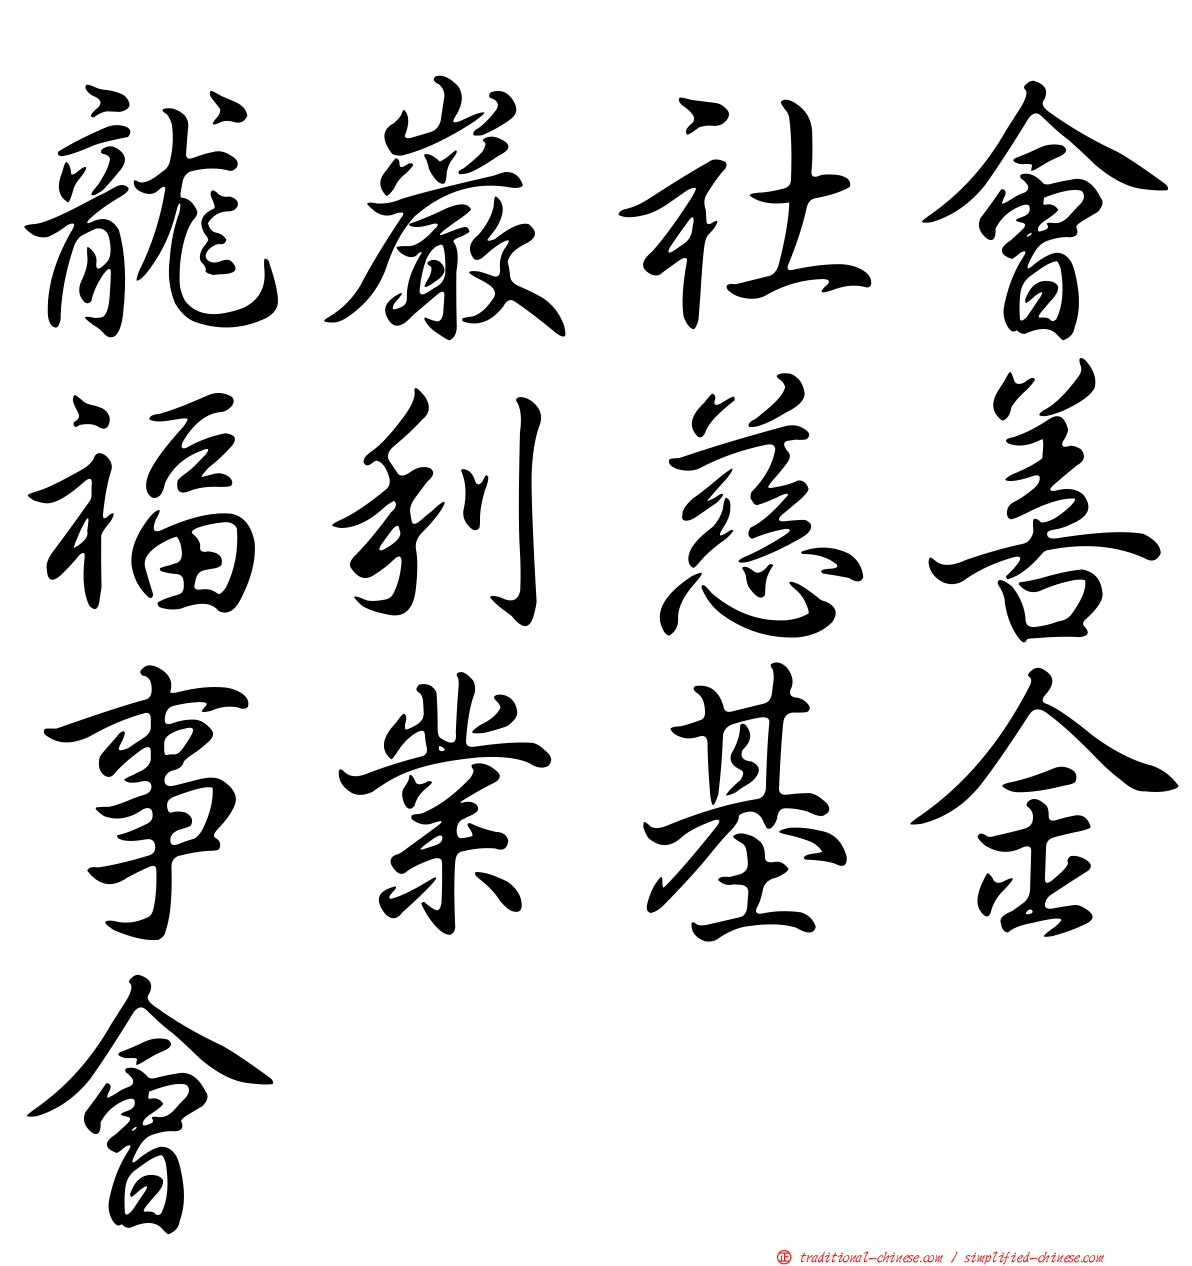 龍巖社會
福利慈善
事業基金
會
正 traditional-chinese.com / simplified-chinese.com